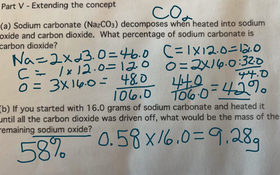 Part V - Extending the concept
CO₂
(a) Sodium carbonate (Na₂CO₃) decomposes when heated into sodium
oxide and carbon dioxide. What percentage of sodium carbonate is
carbon dioxide?
Na = 2 x 23.0 = 46.0 C = 1 x 12.0 = 12.0
C = 1 x 12.0 = 12.0 O = 2 x 16.0 = 32.0
O = 3 x 16.0 = 48.0 44.0
106.0 44.0/106.0 = 42%
(b) If you started with 16.0 grams of sodium carbonate and heated it
until all the carbon dioxide was driven off, what would be the mass of the
remaining sodium oxide?
58% 0.58 x 16.0 = 9.28g